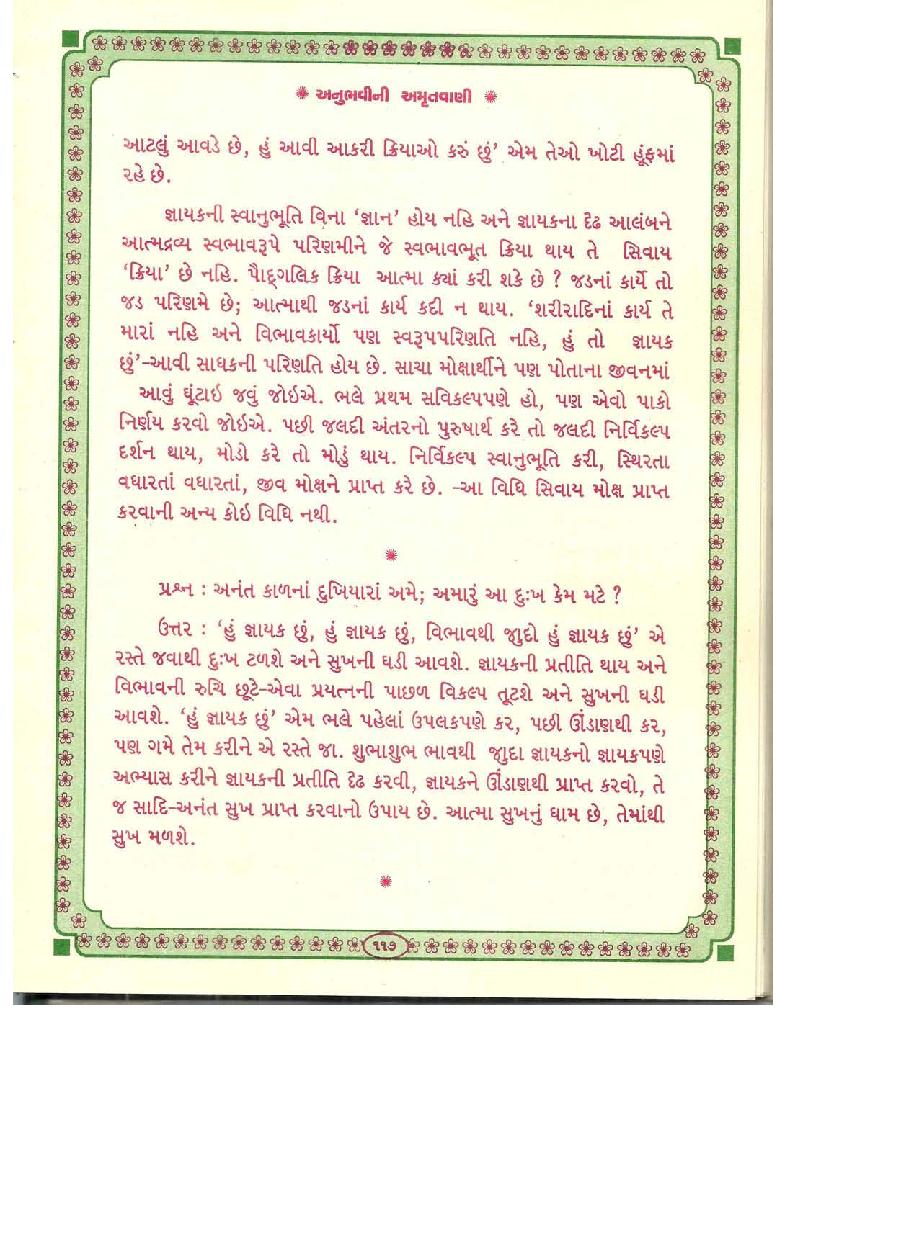 ✺ અનુભવીની અમૃતવાણી ✺
આટલું આવડે છે, હું આવી આકરી ક્રિયાઓ કરું છું’ એમ તેઓ ખોટી હૂંફમાં
રહે છે.
જ્ઞાયકની સ્વાનુભૂતિ વિના ‘જ્ઞાન’ હોય નહિ અને જ્ઞાયકના દૃઢ આલંબને
આત્મદ્રવ્ય સ્વભાવરૂપે પરિણમીને જે સ્વભાવભૂત ક્રિયા થાય તે સિવાય
‘ક્રિયા’ છે નહિ. પૌદ્ગલિક ક્રિયા આત્મા ક્યાં કરી શકે છે ? જડનાં કાર્યે તો
જડ પરિણમે છે; આત્માથી જડનાં કાર્ય કદી ન થાય. ‘શરીરાદિનાં કાર્ય તે
મારાં નહિ અને વિભાવકાર્યો પણ સ્વરૂપપરિણતિ નહિ, હું તો જ્ઞાયક
છું’–આવી સાધકની પરિણતિ હોય છે. સાચા મોક્ષાર્થીને પણ પોતાના જીવનમાં
આવું ઘૂંટાઇ જવું જોઇએ. ભલે પ્રથમ સવિકલ્પપણે હો, પણ એવો પાકો
નિર્ણય કરવો જોઇએ. પછી જલદી અંતરનો પુરુષાર્થ કરે તો જલદી નિર્વિકલ્પ
દર્શન થાય, મોડો કરે તો મોડું થાય. નિર્વિકલ્પ સ્વાનુભૂતિ કરી, સ્થિરતા
વધારતાં વધારતાં, જીવ મોક્ષને પ્રાપ્ત કરે છે. –આ વિધિ સિવાય મોક્ષ પ્રાપ્ત
કરવાની અન્ય કોઇ વિધિ નથી.
✺
પ્રશ્ન : અનંત કાળનાં દુખિયારાં અમે; અમારું આ દુઃખ કેમ મટે ?
ઉત્તર : ‘હું જ્ઞાયક છું, હું જ્ઞાયક છું, વિભાવથી જુદો હું જ્ઞાયક છું’ એ
રસ્તે જવાથી દુઃખ ટળશે અને સુખની ઘડી આવશે. જ્ઞાયકની પ્રતીતિ થાય અને
વિભાવની રુચિ છૂટે–એવા પ્રયત્નની પાછળ વિકલ્પ તૂટશે અને સુખની ઘડી
આવશે. ‘હું જ્ઞાયક છું’ એમ ભલે પહેલાં ઉપલકપણે કર, પછી ઊંડાણથી કર,
પણ ગમે તેમ કરીને એ રસ્તે જા. શુભાશુભ ભાવથી જુદા જ્ઞાયકનો જ્ઞાયકપણે
અભ્યાસ કરીને જ્ઞાયકની પ્રતીતિ દૃઢ કરવી, જ્ઞાયકને ઊંડાણથી પ્રાપ્ત કરવો, તે
જ સાદિ–અનંત સુખ પ્રાપ્ત કરવાનો ઉપાય છે. આત્મા સુખનું ધામ છે, તેમાંથી
સુખ મળશે.
✺
૧૧૭